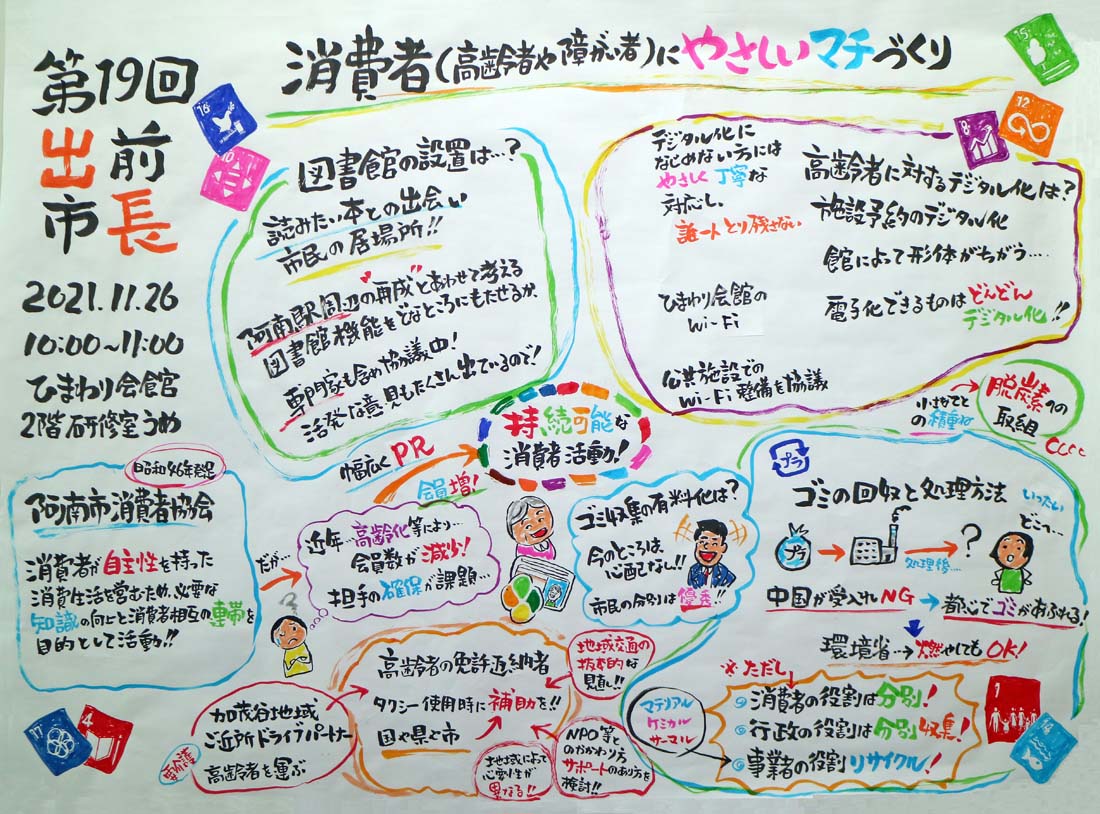 第19回
出前
市長
2021.11.26
10:00~11:00
ひまわり会館
2階研修室うめ
消費者(高齢者や障がい者)にやさしいマチづくり
16
10
図書館の設置は…?
読みたい本との出会い
市民の居場所!!
阿南駅周辺の"再成"とあわせて考える
図書館機能をどなところにもたせるか、
専門家も含め協議中!
活発な意見もたくさん出ているので!
15
12
8
デジタル化に
なじめない方には
やさしく丁寧な
対応し、
誰一人とり残さない
ひまわり会館の
Wi-Fi
公共施設での
Wi-Fi整備を協議
高齢者に対するデジタル化は?
施設予約のデジタル化
館によって形体がちがう…
電子化できるものはどんどん
デジタル化!!
持続可能な
消費者活動!
幅広くPR
会員増!
昭和46年発足
阿南市消費者協会
消費者が自主性を持った
消費生活を営むため、必要な
知識の向上と消費者相互の連帯を
目的として活動!!
だが…
近年…高齢化等により…
会員数が減少!
担手の確保が課題…
ゴミ収集の有料化は?
今のところは
心配なし!!
市民の分別は優秀!!
小さなことの
積重ね
脱炭素の
取組
CCCC
プラ
ゴミの回収と処理方法
プラ
処理後…
?
いったい
どこっ…
中国が受入れNG
都心でゴミがあふれる!
環境省…燃やしてもOK!
※ただし
消費者の役割は分別!
行政の役割は分別収集!
事業者の役割リサイクル!
マテリアル
ケミカル
サーマル
1
14
17
4
加茂谷地域
ご近所ドライブパートナー
高齢者を運ぶ
高齢者の免許返納者
タクシー使用時に補助を!!
国や県や市
地域交通の
抜本的な
見直し!!
地域によって
必要性が
異なる!!
NPO等と
のかかわり方
サポートのあり方を
検討!!